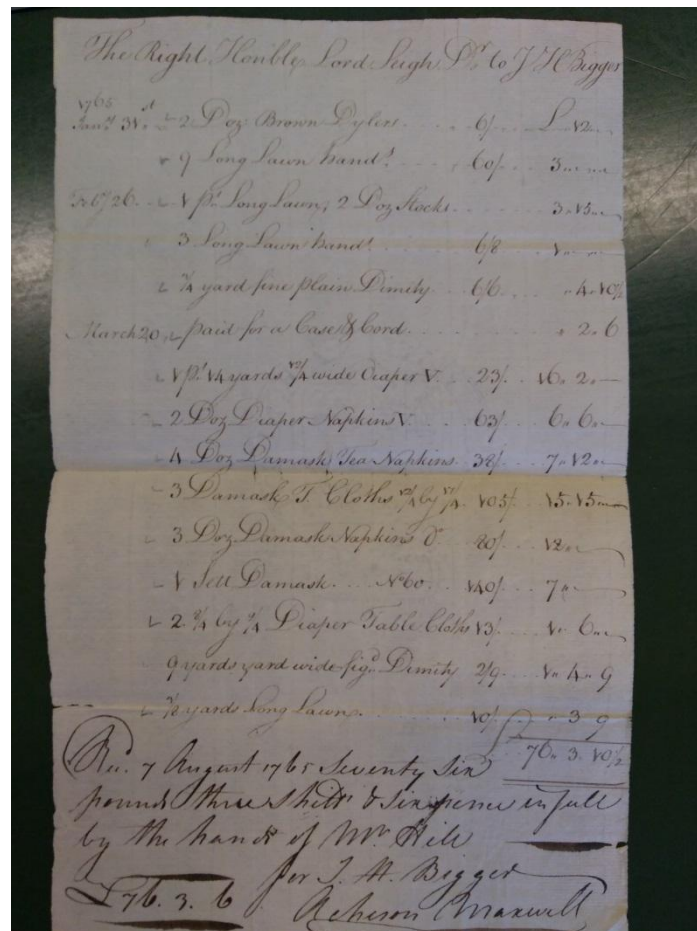 The Right Honble Lord Leigh Dr. to J H Bigger
1765
Janry 31st 2 Doz Brown Dylers 6/ £ 12
9 Long Lawn hand. 60/ 3
Feby 26 1 ps Long Lawn, 2 Doz Stocks 3 15
3 Long Lawn hand. 6/8 1
3/4 yard fine plain Dimity 6/6 4 10½
March 20 paid for a Case & Cord 2 6
1 ps 14 yards 12/4 wide Diaper V. 23/ 16 2
2 Doz Diaper Napkins V. 63/ 6 6
4 Doz Damask Tea Napkins 38/ 7 12
3 Damask T. Cloths 12/4 by 17/4 105/ 15 15
3 Doz Damask Napkins 80/ 12
1 Sett Damask No 60 140/ 7
2 8/4 by 9/4 Diaper Table Cloths 13/ 1 6
9 yards yard wide figd Dimity 2/9 1 4 9
3/8 yards Long Lawn 10/ 3 9
76 3 10½
Recd. 7 August 1765 Seventy Six
pounds three Shills & Sixpence in full
by the hands of Mr Hill
for J. H. Bigger
£76. 3. 6 Acheson Maxwell